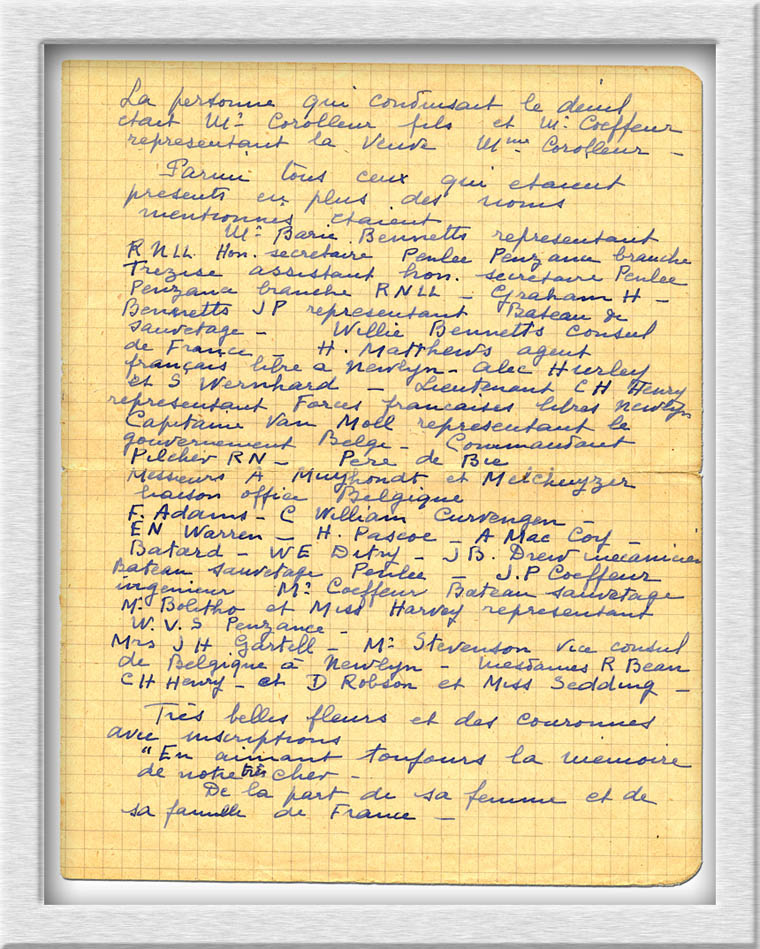 La personne qui conduisait le deuil
etait Mr Corolleur fils et Mr Coeffeur
representant la Veuve Mme Corolleur -
Parmi tous ceux qui etaient
presents en plus des noms
mentionnés etaient
Mr Barie Bennetts representant
RNLL Hon. secretaire Penlee Penzance branche
Trezise assistant hon. secretaire Penlee
Penzance branche RNLL - Graham H -
Bennetts JP representant Bateau de
sauvetage - Willie Bennetts consul
de France - H. Matthews agent
français libre a Newlyn - Alec Hurley
et S Wernhard - Lieutenant CH Henry
representant Forces françaises libres Newlyn
Capitaine Van Moll representant le
gouvernement Belge - Commandant
Pilcher RN - Pere de Bie
Messieurs A Muyhondt et Metchuyzer
liaison office Belgique
F. Adams - C William Curvengen -
EN Warren - H. Pascoe - A Mac Coy -
Batard - WE Ditry - J B. Drew mecanicien
Bateau sauvetage Penlee - J.P Coeffeur
ingenieur Mr Coeffeur Bateau sauvetage
Mr Bolitho et Miss Harvey representant
W.V.S Penzance -
Mrs J H Gartell - Mr Stevenson vice consul
de Belgique à Newlyn - Mesdames R Bean
CH Henry - et D Robson et Miss Sedding -
Très belles fleurs et des couronnes
avec inscriptions
"En aimant toujours la memoire
de notre très cher -
De la part de sa femme et de
sa famille de France -